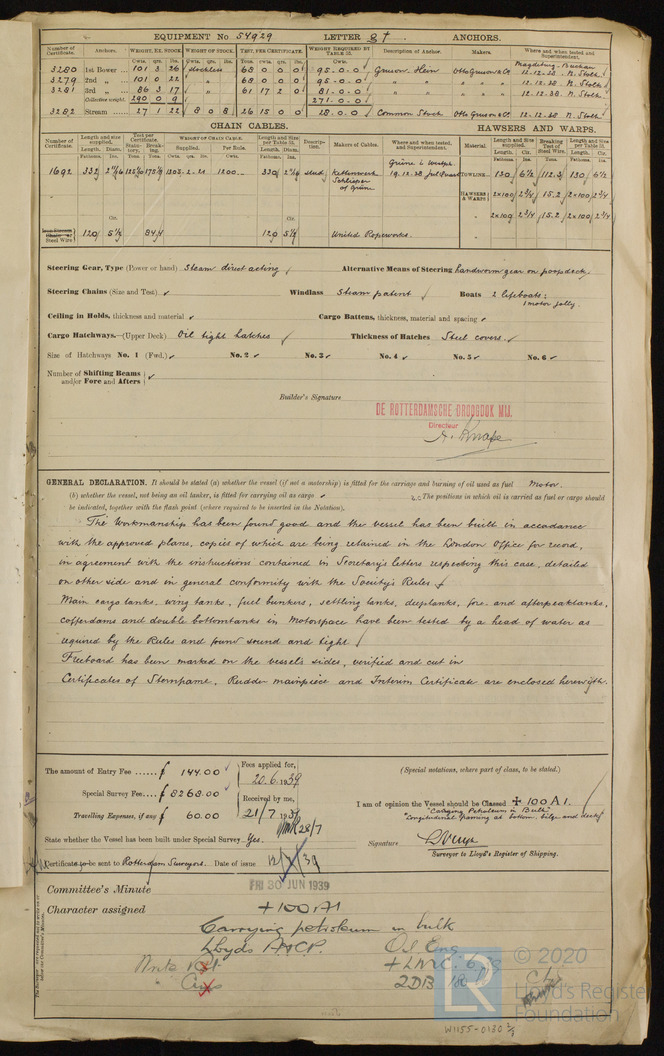 EQUIPMENT No 54929 LETTER gt ANCHORS.
Number of Certificate. Anchors. WEIGHT, EX. STOCK. WEIGHT OF STOCK. TEST, PER CERTIFICATE. WEIGHT REQUIRED BY TABLE 31. Description of Anchor. Makers. Where and when tested and Superintendent.
Cwts. qrs. lbs. Cwts. qrs. lbs. Tons. cwts. qrs. lbs. Cwts.
3280 1st Bower 101 3 26 stockless 68 0 0 0 95-0-0 Otto Gruson & Co 12.12.38
3279 2nd „ 101 0 22 „ 68 0 0 0 95-0-0 „ „ 12.12.38
3281 3rd „ 86 3 17 „ 61 17 2 0 81-0-0 „ „ 12.12.38
Collective weight 290 0 9 271-0-0
3282 Stream 27 1 22 8 0 8 26 15 0 0 28-0-0 Common Stock Otto Gruson & Co 12.12.38
CHAIN CABLES. HAWSERS AND WARPS.
Number of Certificate. Length and size supplied. Test per Certificate. WEIGHT OF CHAIN CABLE. Length and Size per Table 31. Description. Makers of Cables. Where and when tested, and Superintendent. Material. Length and Size supplied. Breaking Test of Steel Wire. Length and Size per Table 31.
Length. Diam. Statutory. Breaking. Supplied. Per Rule. Length. Diam. Length. Cir. Length. Cir.
Fathoms. Ins. Tons. Tons. Cwts. qrs. lbs. Cwts. Fathoms. Ins. Fathoms. Ins. Tons. Fathoms. Ins.
1692 1303-2-21 1200 330 stud Kettenwerk Schlieper of Grüne 19.12.38 TOWLINE 130 6½ 112.3 130 6½
HAWSERS & WARPS 2x100 2¾ 15.2 2x100 2¾
„ 2x100 2¾ 15.2 2x100 2¾
Cir. Cir.
Steel Wire 120 5¼ 84.4 120 5¼ United Ropeworks.
Steering Gear, Type (Power or hand) Steam direct acting Alternative Means of Steering handworm gear on poopdeck
Steering Chains (Size and Test) Windlass Steam patent Boats 2 lifeboats;
1 motor jolly.
Ceiling in Holds, thickness and material Cargo Battens, thickness, material and spacing
Cargo Hatchways.—(Upper Deck) Oil tight hatches Thickness of Hatches Steel covers.
Size of Hatchways No. 1 (Fwd.) No. 2 No. 3 No. 4 No. 5 No. 6
Number of Shifting Beams
and/or Fore and Afters
Builder's Signature
DE ROTTERDAMSCHE DROOGDOK MIJ.
Directeur
GENERAL DECLARATION. It should be stated (a) whether the vessel (if not a motorship) is fitted for the carriage and burning of oil used as fuel Motor.
(b) whether the vessel, not being an oil tanker, is fitted for carrying oil as cargo The positions in which oil is carried as fuel or cargo should
be indicated, together with the flash point (where required to be inserted in the Notation).
The Workmanship has been found good and the vessel has been built in accordance
with the approved plans, copies of which are being retained in the London Office for record,
in agreement with the instructions contained in Secretary's letters respecting this case, detailed
on other side and in general conformity with the Society's Rules.
Main cargo tanks, wing tanks, fuel bunkers, settling tanks, deeptanks, fore- and afterpeaktanks,
cofferdams and double bottomtanks in Motorspace have been tested by a head of water as
required by the Rules and found sound and tight.
Freeboard has been marked on the vessel's sides, verified and cut in
Certificates of Sternframe, Rudder mainpiece and Interim Certificate are enclosed herewith.
The amount of Entry Fee ƒ 144.00 Fees applied for, 20.6.1939
Special Survey Fee ƒ 8268.00 Received by me,
Travelling Expenses, if any ƒ 60.00 21/7 1939
28/7
(Special notations, where part of class, to be stated.)
I am of opinion the Vessel should be Classed + 100 A 1.
"Carrying Petroleum in Bulk"
"Longitudinal framing at bottom, bilge and deck"
State whether the Vessel has been built under Special Survey Yes. Signature
Surveyor to Lloyd's Register of Shipping.
Certificate to be sent to Rotterdam Surveyors. Date of issue 12/7/39
FRI 30 JUN 1939
Committee's Minute
Character assigned +100A1
Carrying petroleum in bulk
Lloyds A&CP. Oil Eng
+LMC. 6.39
2DB 180 lb
© 2020
Lloyd's Register
Foundation
LR
W1155-0130 2/2